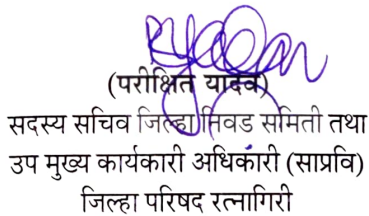 (परीक्षित यादव)
सदस्य सचिव जिल्हा निवड समिती तथा
उप मुख्य कार्यकारी अधिकारी (साप्रवि)
जिल्हा परिषद रत्नागिरी